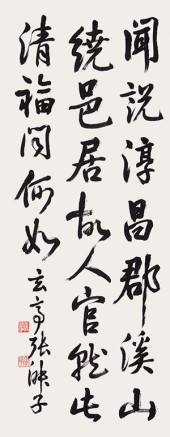 聞説淳昌郡溪山
繞邑居故人官就此
清福問何如
玄亭張
子